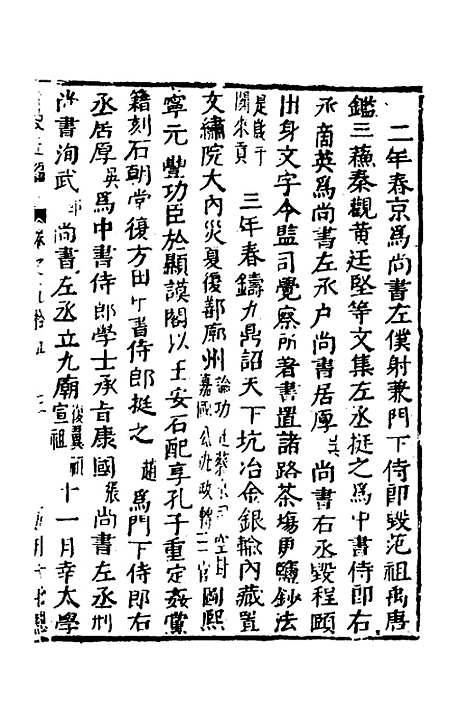 二年春京爲尚書左僕射兼門下侍郎毀范祖禹唐
鑑三蘓秦觀黄廷堅等文集左丞挺之爲中書侍郎右
丞商英爲尚書左丞户尚書居厚吴尚書右丞毀程頤
出身文字令監司覺察所著書置諸路茶塲更鹽鈔法
是歲于闐來貢三年春鑄九鼎詔天下坑冶金銀輸内藏置
文繡院大内災夏復鄯廓州論功蔡京司空封嘉國公政轉三官圖熙
寧元豐功臣於顯謨閣以王安石配享孔子重定姦黨
籍刻石朝堂復方田中書侍郎挺之趙爲門下侍郎右
丞居厚吴爲中書侍郎學士承旨康國張尚書左丞刑
尚書洵武尚書左丞立九廟復翼祖宣祖十一月幸太學